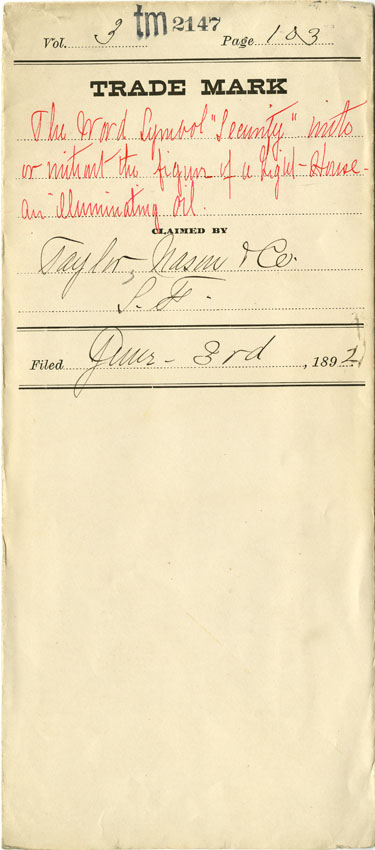 tm 2147
Vol. 3 Page 103
TRADE MARK
The Word Symbol "Security" with
or without the figure of a Light-House-
an illuminating oil.
CLAIMED BY
Taylor, Nason & Co.
S. F.
Filed June 3rd, 1892.